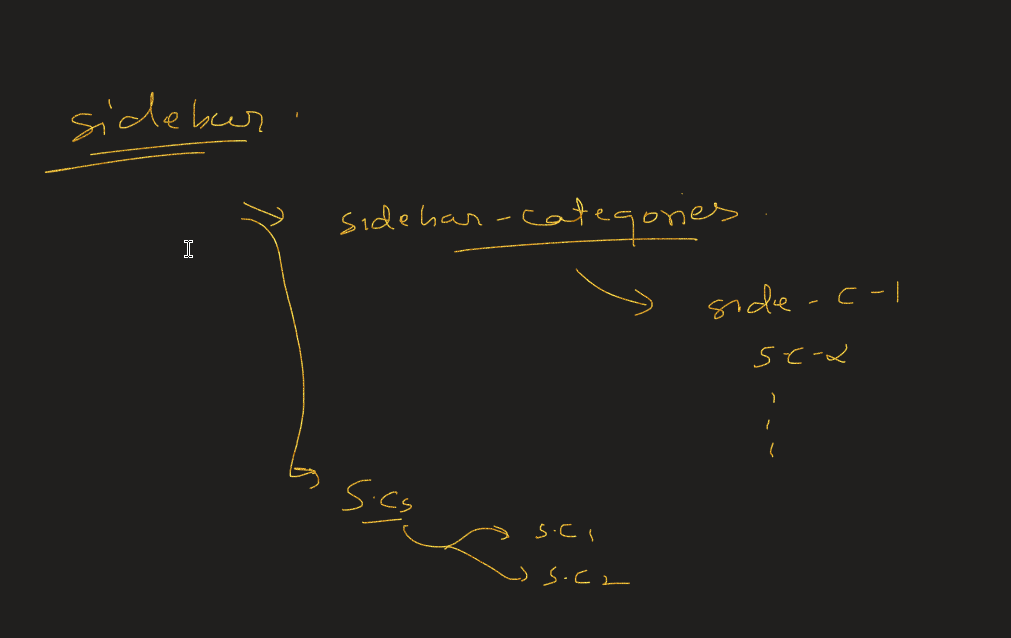 sidebar.
sidebar-categories.
side-c-1
SC-2
S.Cs
S.C1
S.C2